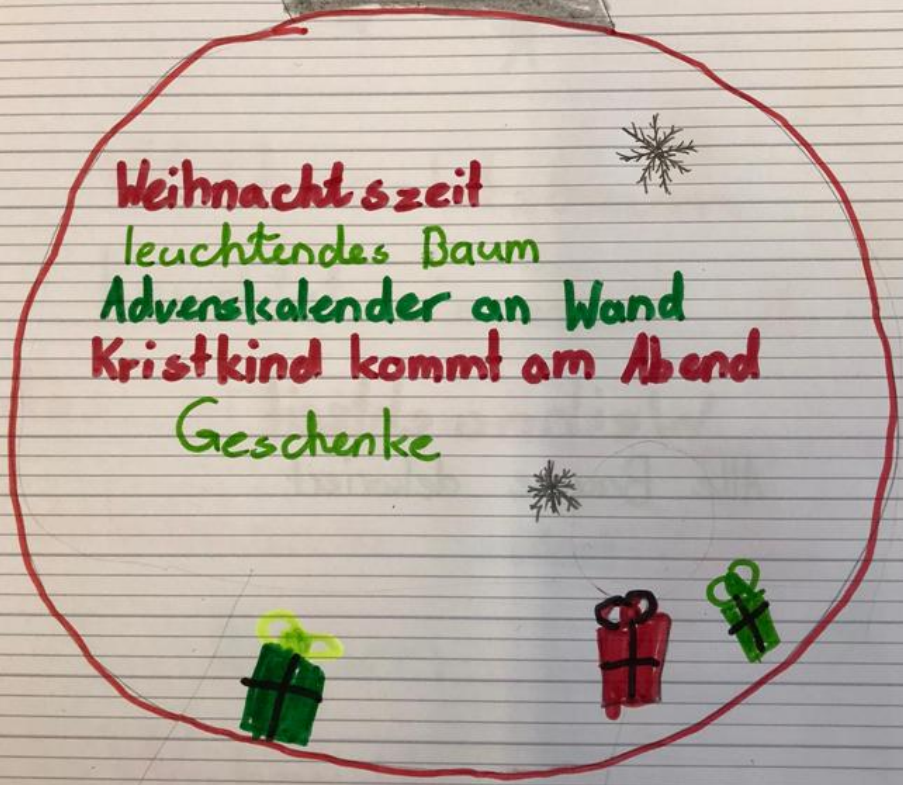 Weihnachtszeit
leuchtendes Baum
Advenskalender an Wand
Kristkind kommt am Abend
Geschenke